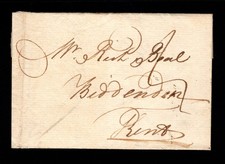 Mr Richd Beal
Biddenden
Kent